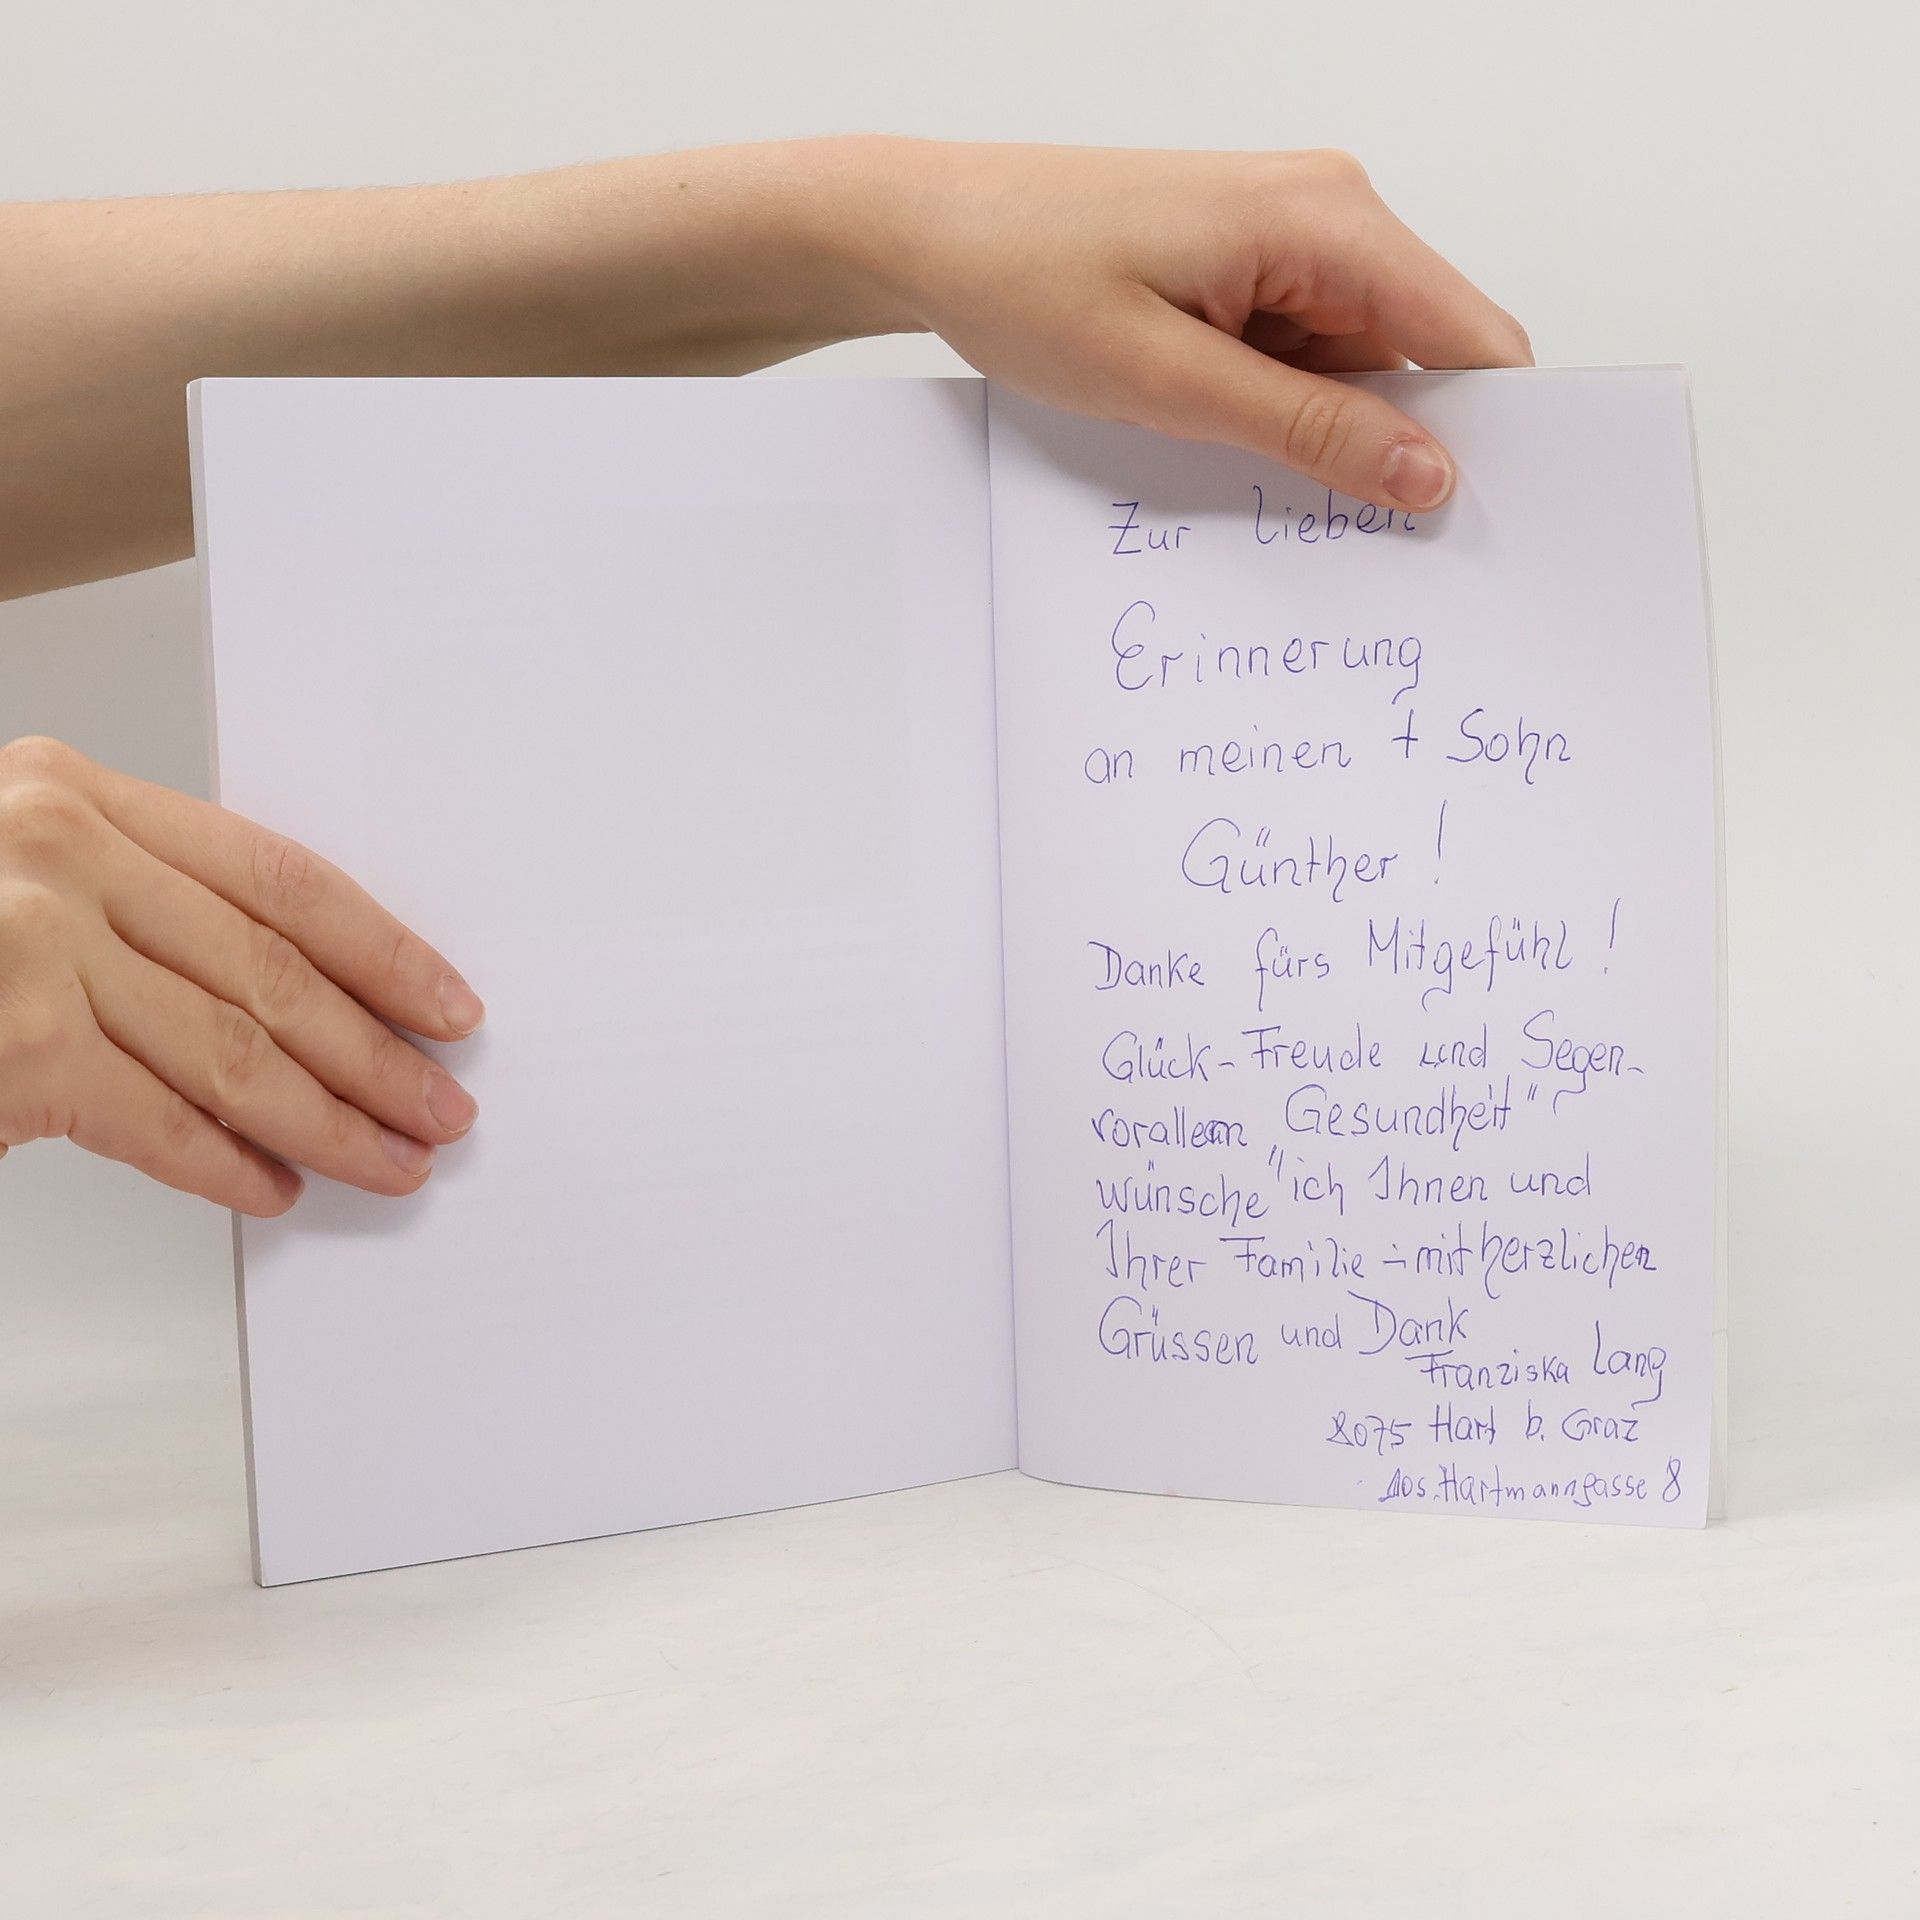 Zur lieben
Erinnerung
an meinen † Sohn
Günther!
Danke fürs Mitgefühl!
Glück-Freude und Segen-
vorallem „Gesundheit"
wünsche ich Ihnen und
Ihrer Familie - mit herzlichen
Grüssen und Dank
Franziska Lang
8075 Hart b. Graz
Jos. Hartmanngasse 8